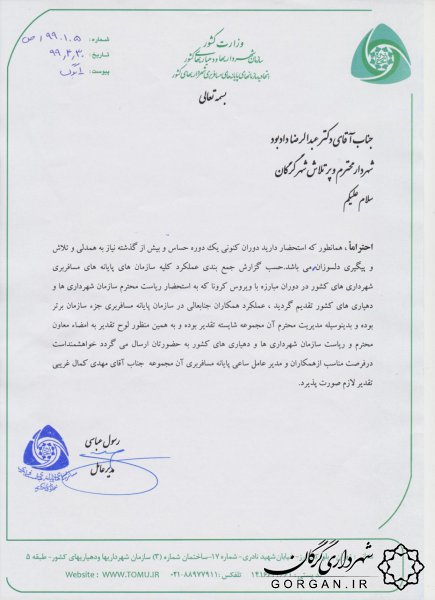 وزارت کشور
سازمان شهرداریها و دهیاریهای کشور
اتحادیه سازمانهای پایانه های مسافربری شهرداریهای کشور
شماره: ۹۹،۱۰۵/ص
تاریخ: ۹۹،۴،۳۰
پیوست:
بسمه تعالی
جناب آقای دکتر عبدالرضا دادبود
شهردار محترم و پر تلاش شهر گرگان
سلام علیکم
احتراماً، همانطور که استحضار دارید دوران کنونی یک دوره حساس و بیش از گذشته نیاز به همدلی و تلاش
و پیگیری دلسوزانه می باشد.حسب گزارش جمع بندی عملکرد کلیه سازمان های پایانه های مسافربری
شهرداری های کشور در دوران مبارزه با ویروس کرونا که به استحضار ریاست محترم سازمان شهرداری ها و
دهیاری های کشور تقدیم گردید ، عملکرد همکاران جنابعالی در سازمان پایانه مسافربری جزء سازمان برتر
بوده و بدینوسیله مدیریت محترم آن مجموعه شایسته تقدیر بوده و به همین منظور لوح تقدیر به امضاء معاون
محترم و ریاست سازمان شهرداری ها و دهیاری های کشور به حضورتان ارسال می گردد خواهشمنداست
درفرصت مناسب ازهمکاران و مدیر عامل ساعی پایانه مسافربری آن مجموعه جناب آقای مهدی کمال غریبی
تقدیر لازم صورت پذیرد.
رسول عباسی
مدیرعامل
خیابان شهید نادری- شماره ۱۷-ساختمان شماره (۳) سازمان شهرداریها ودهیاریهای کشور- طبقه ۵
تلفکس: ۸۸۹۷۷۹۱۱-۰۲۱ Website : WWW.TOMU.IR
شهرداری گرگان
GORGAN.IR